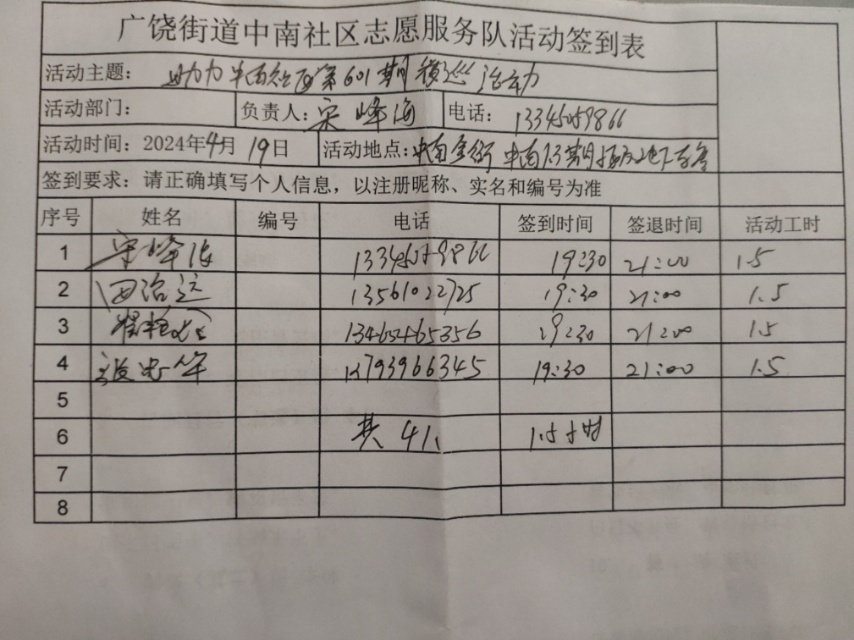 广饶街道中南社区志愿服务队活动签到表
活动主题：助力中南社区第601期夜巡活动
活动部门： 负责人：宋峰海 电话：13345059866
活动时间：2024年4月19日 活动地点：中南 中南1.3期 地下车库
签到要求：请正确填写个人信息，以注册昵称、实名和编号为准
序号 姓名 编号 电话 签到时间 签退时间 活动工时
1 宋峰海 13345059866 19:30 21:00 1.5
2 田治运 13561022725 19:30 21:00 1.5
3 19:30 21:00 1.5
4 13793966345 19:30 21:00 1.5
5
6 共4人 1.5小时
7
8